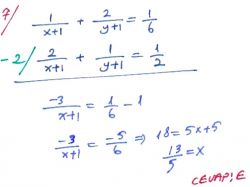 7/ 1/(x+1) + 2/(y+1) = 1/6
-2/ 2/(x+1) + 1/(y+1) = 1/2
-3/(x+1) = 1/6 - 1
-3/(x+1) = -5/6 ⇒ 18 = 5x+5
13/5 = x
CEVAP: E